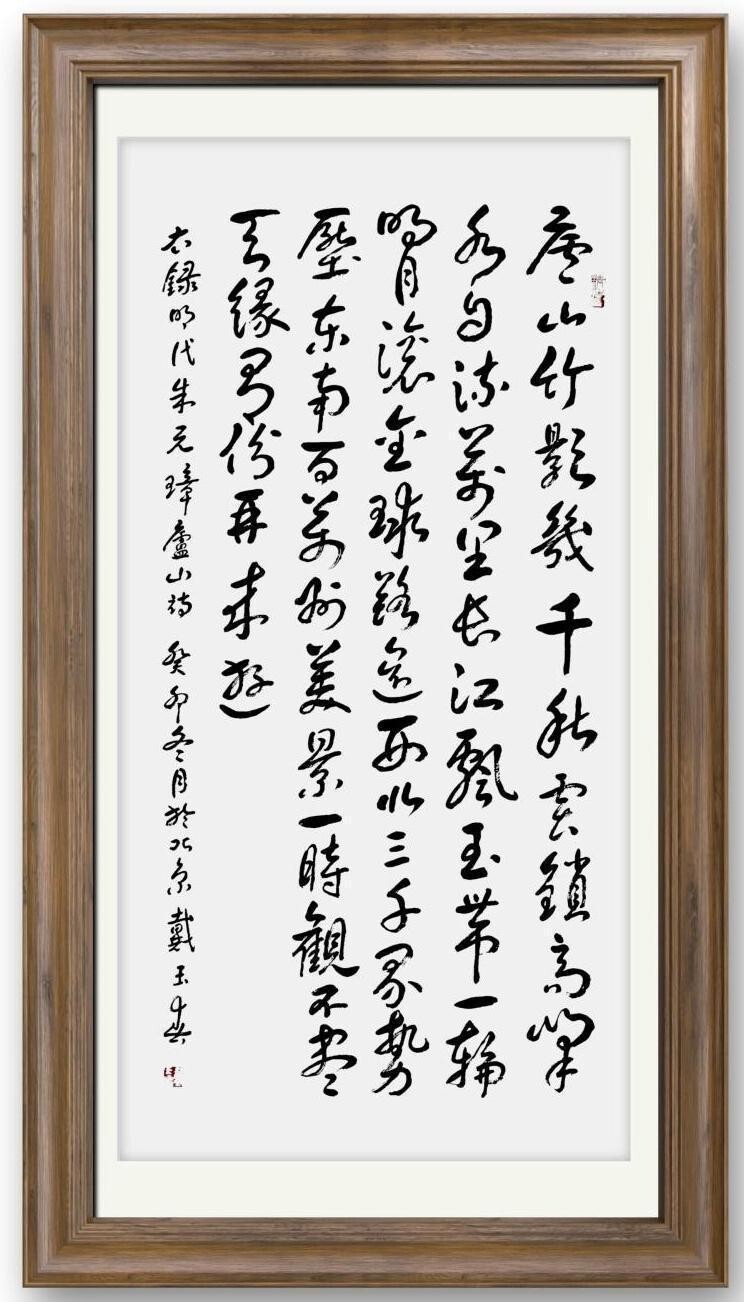 廬山竹影幾千秋雲鎖高峯
水自流萬里長江飄玉帶一輪
明月滾金球路遥西北三千界勢
壓東南百萬州美景一時觀不盡
天緣有份再来遊
右錄明代朱元璋廬山詩 癸卯冬月於北京 戴玉